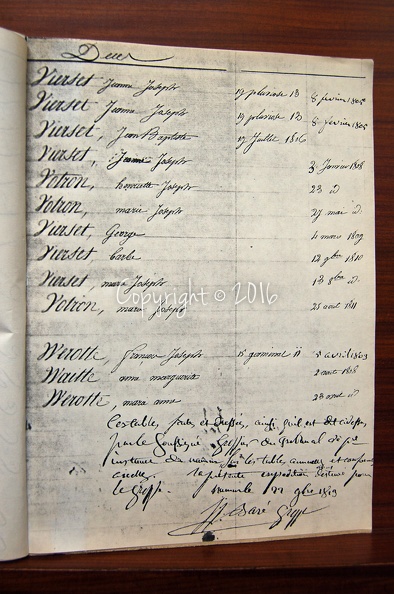 Deces
Vierset Jeanne Joseph 19 pluviose 13 8 fevrier 1805
Vierset Jeanne Joseph 19 pluviose 13 8 fevrier 1805
Vierset, Jean Baptiste 17 Juillet 1806
Vierset, Jeanne Joseph 3 Janvier 1808
Votron, henriette Joseph 23 id
Votron, marie Joseph 27 mai id
Vierset, George 4 mars 1809
Vierset barbe 12 9bre 1810
Vierset marie Joseph 13 8bre id
Votron, marie Joseph 25 aout 1811
Copyright © 2016
Werotte, francois Joseph 15 germinal 11 5 avril 1803
Waitte anne marguerite 2 aout 1808
Werotte, marie anne 28 aout id
Ces tables, faites et dressées, ainsi qu'il est dit ci dessus
par le Soussigné Greffier du tribunal de
instance de les tables annuelles et
la presente expedition destinée pour
le greffe. 22 9bre 1813
Greff